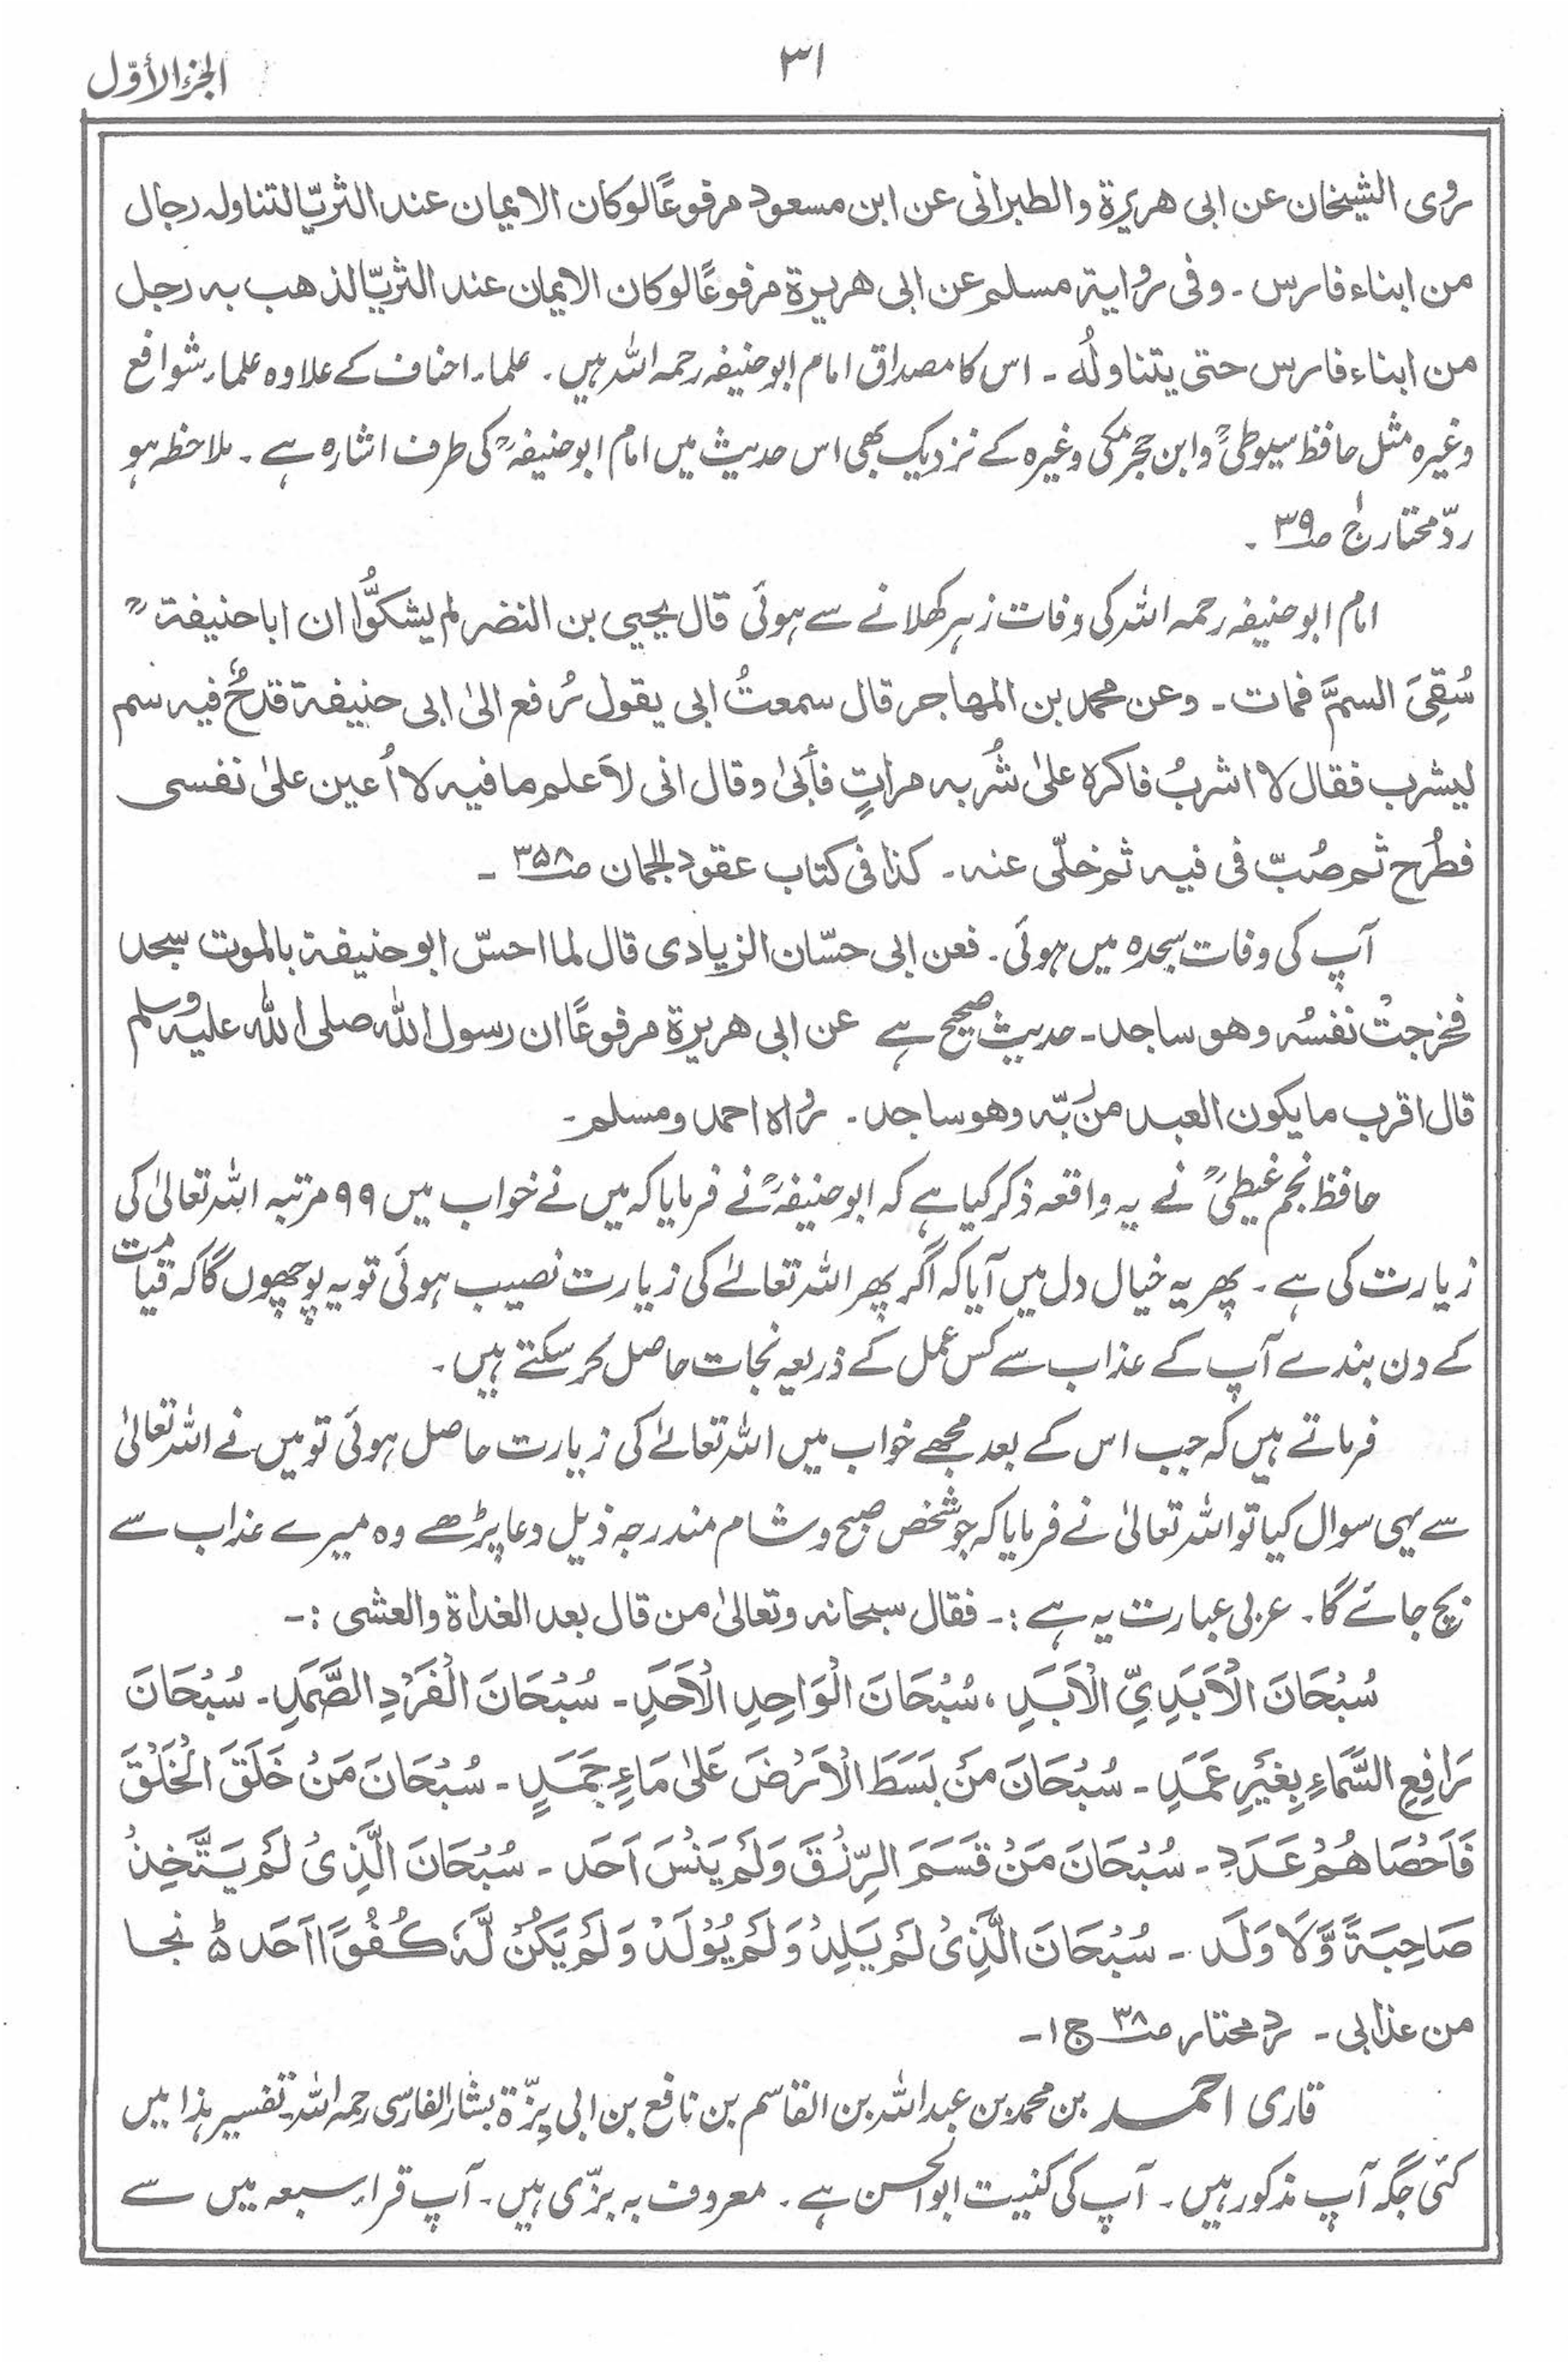 الجزء الأوّل
۳۱
روی الشیخان عن ابی هریرة والطبرانی عن ابن مسعود مرفوعًا لوکان الایمان عند الثریّا لتناوله رجال
من ابناء فارس ۔ وفی روایة مسلم عن ابی هریرة مرفوعًا لوکان الایمان عند الثریّا لذهب به رجل
من ابناء فارس حتی یتناولُه ۔ اس کا مصداق امام ابوحنیفہ رحمہ اللہ ہیں ۔ علماء احناف کے علاوہ علماء شوافع
وغیرہ مثل حافظ سیوطیؒ وابن حجر مکیؒ وغیرہ کے نزدیک بھی اس حدیث میں امام ابوحنیفہؒ کی طرف اشارہ ہے ۔ ملاحظہ ہو
ردّ مختار ج۱ ص۳۹ ۔
امام ابوحنیفہ رحمہ اللہ کی وفات زہر کھلانے سے ہوئی قال یحیی بن النضر لم یشکوُّا ان اباحنیفةؒ
سُقِیَ السمَّ فمات ۔ وعن محمد بن المهاجر قال سمعتُ ابی یقول رُفع الیٰ ابی حنیفة قدحٌ فیه سم
لیشرب فقال لا اشربُ فاکره علیٰ شُربه مراتٍ فأبیٰ وقال انی لاَعلم ما فیه لا اُعین علیٰ نفسی
فطُرح ثم صُبّ فی فیه ثم خلّی عنه ۔ کذا فی کتاب عقود الجمان ص۳۵۸ ۔
آپ کی وفات سجدہ میں ہوئی ۔ فعن ابی حسّان الزیادی قال لما احسّ ابوحنیفة بالموت سجد
فخرجتْ نفسُه وهو ساجد ۔ حدیث صحیح ہے عن ابی هریرة مرفوعًا ان رسول اللّٰه صلی اللّٰه علیه وسلم
قال اقرب ما یکون العبد من ربّه وهو ساجد ۔ رواه احمد ومسلم ۔
حافظ نجم غیطیؒ نے یہ واقعہ ذکر کیا ہے کہ ابوحنیفہؒ نے فرمایا کہ میں نے خواب میں ۹۹ مرتبہ اللہ تعالیٰ کی
زیارت کی ہے ۔ پھر یہ خیال دل میں آیا کہ اگر پھر اللہ تعالےٰ کی زیارت نصیب ہوئی تو یہ پوچھوں گا کہ قیامت
کے دن بندے آپ کے عذاب سے کس عمل کے ذریعہ نجات حاصل کر سکتے ہیں ۔
فرماتے ہیں کہ جب اس کے بعد مجھے خواب میں اللہ تعالےٰ کی زیارت حاصل ہوئی تو میں نے اللہ تعالیٰ
سے یہی سوال کیا تو اللہ تعالیٰ نے فرمایا کہ جو شخص صبح و شام مندرجہ ذیل دعا پڑھے وہ میرے عذاب سے
بچ جائے گا ۔ عربی عبارت یہ ہے :۔ فقال سبحانه وتعالیٰ من قال بعد الغداة والعشی :۔
سُبْحَانَ الْاَبَدِیِّ الْاَبَدِ ، سُبْحَانَ الْوَاحِدِ الْاَحَدِ ۔ سُبْحَانَ الْفَرْدِ الصَّمَدِ ۔ سُبْحَانَ
رَافِعِ السَّمَاءِ بِغَیْرِ عَمَدٍ ۔ سُبْحَانَ مَنْ بَسَطَ الْاَرْضَ عَلیٰ مَاءٍ جَمَدٍ ۔ سُبْحَانَ مَنْ خَلَقَ الْخَلْقَ
فَاَحْصَاهُمْ عَدَدِ ۔ سُبْحَانَ مَنْ قَسَمَ الرِّزْقَ وَلَمْ یَنْسَ اَحَد ۔ سُبْحَانَ الَّذِیْ لَمْ یَتَّخِذْ
صَاحِبَةً وَّلَا وَلَد ۔ سُبْحَانَ الَّذِیْ لَمْ یَلِدْ وَلَمْ یُوْلَدْ وَلَمْ یَکُنْ لَّهٗ کُفُوًا اَحَد ۵ نجا
من عذابی ۔ رد مختار ص۳۸ ج۱ ۔
قاری احمد بن محمد بن عبد اللہ بن القاسم بن نافع بن ابی بزّة بشار الفارسی رحمہ اللہ ۔ تفسیر ہذا میں
کئی جگہ آپ مذکور ہیں ۔ آپ کی کنیت ابوالحسن ہے ۔ معروف بہ بزّی ہیں ۔ آپ قراء سبعہ میں سے